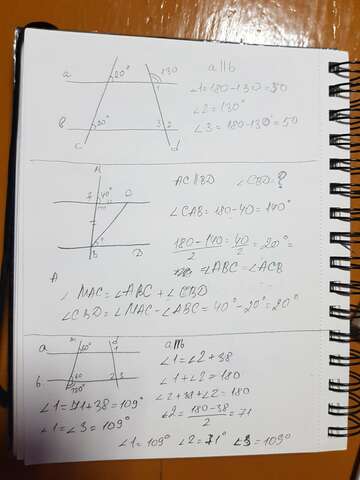 a 70° 130 a||b
1 ∠1=180-130=50
∠2=130°
b 70° 3 2 ∠3=180-130=50
c d
M
A 40° C AC||BD ∠CBD=?
∠CAB=180-40=140°
180-140/2=40/2=20°=
B D =∠ABC=∠ACB
∠MAC=∠ABC+∠CBD
∠CBD=∠MAC-∠ABC=40°-20°=20°
a d 1 a||b
∠1=∠2+38
b 2 3 ∠1+∠2=180
120° ∠2+38+∠2=180
∠1=71+38=109° ∠2=180-38/2=71
∠1=∠3=109°
∠1=109° ∠2=71° ∠3=109°